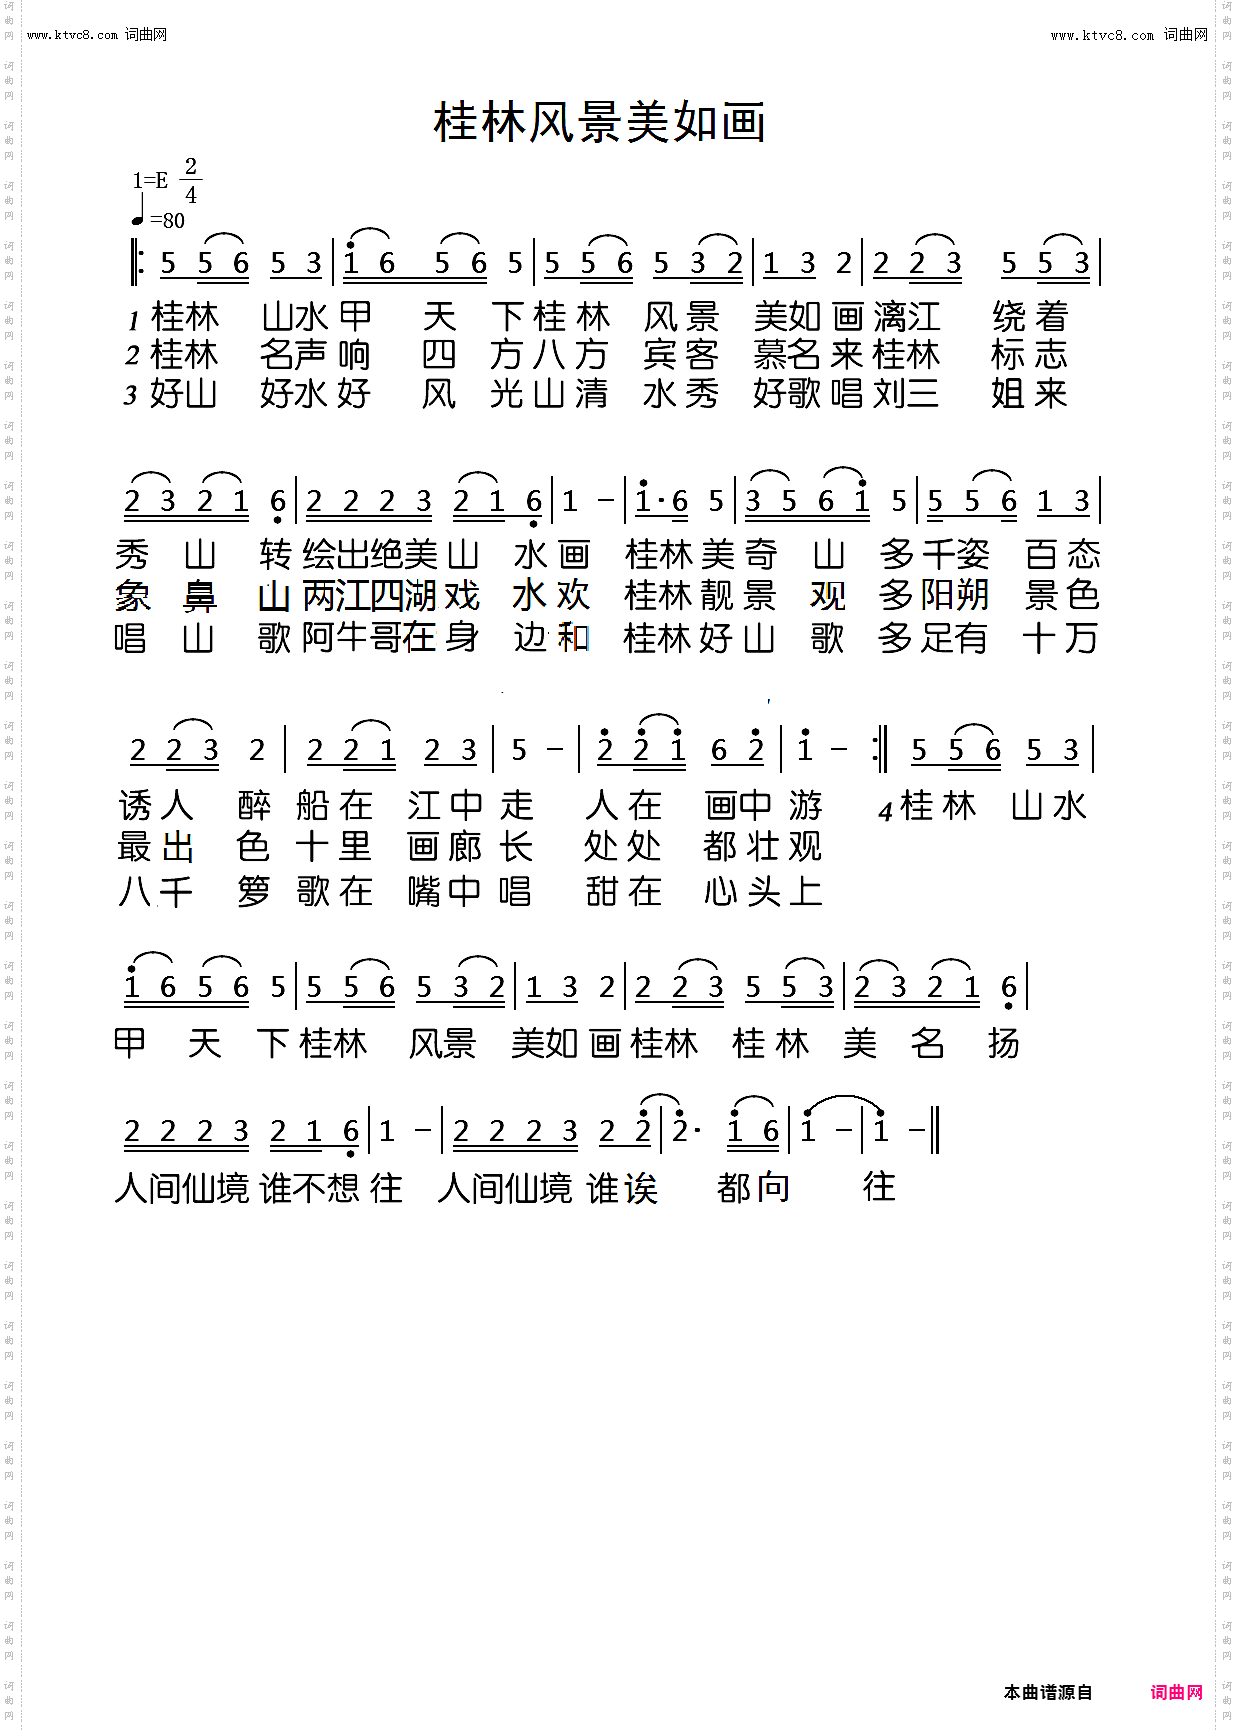 www.ktvc8.com 词曲网
www.ktvc8.com 词曲网
桂林风景美如画
1=E 2/4
=80
5 5 6 5 3 1 6 5 6 5 5 5 6 5 3 2 1 3 2 2 2 3 5 5 3
1 桂林 山水甲 天 下桂林 风景 美如画漓江 绕着
2 桂林 名声响 四 方八方 宾客 慕名来桂林 标志
3 好山 好水好 风 光山清 水秀 好歌唱刘三 姐来
2 3 2 1 6 2 2 2 3 2 1 6 1 － 1· 6 5 3 5 6 1 5 5 5 6 1 3
秀 山 转绘出绝美山 水画 桂林美奇 山 多千姿 百态
象 鼻 山两江四湖戏 水欢 桂林靓景 观 多阳朔 景色
唱 山 歌阿牛哥在身 边和 桂林好山 歌 多足有 十万
2 2 3 2 2 2 1 2 3 5 － 2 2 1 6 2 1 － 5 5 6 5 3
诱人 醉 船在 江中走 人在 画中游 4 桂林 山水
最出 色 十里 画廊长 处处 都壮观
八千 箩 歌在 嘴中唱 甜在 心头上
1 6 5 6 5 5 5 6 5 3 2 1 3 2 2 2 3 5 5 3 2 3 2 1 6
甲 天 下桂林 风景 美如画桂林 桂林 美 名 扬
2 2 2 3 2 1 6 1 － 2 2 2 3 2 2 2· 1 6 1 － 1 －
人间仙境谁不想往 人间仙境谁诶 都向 往
本曲谱源自 词曲网